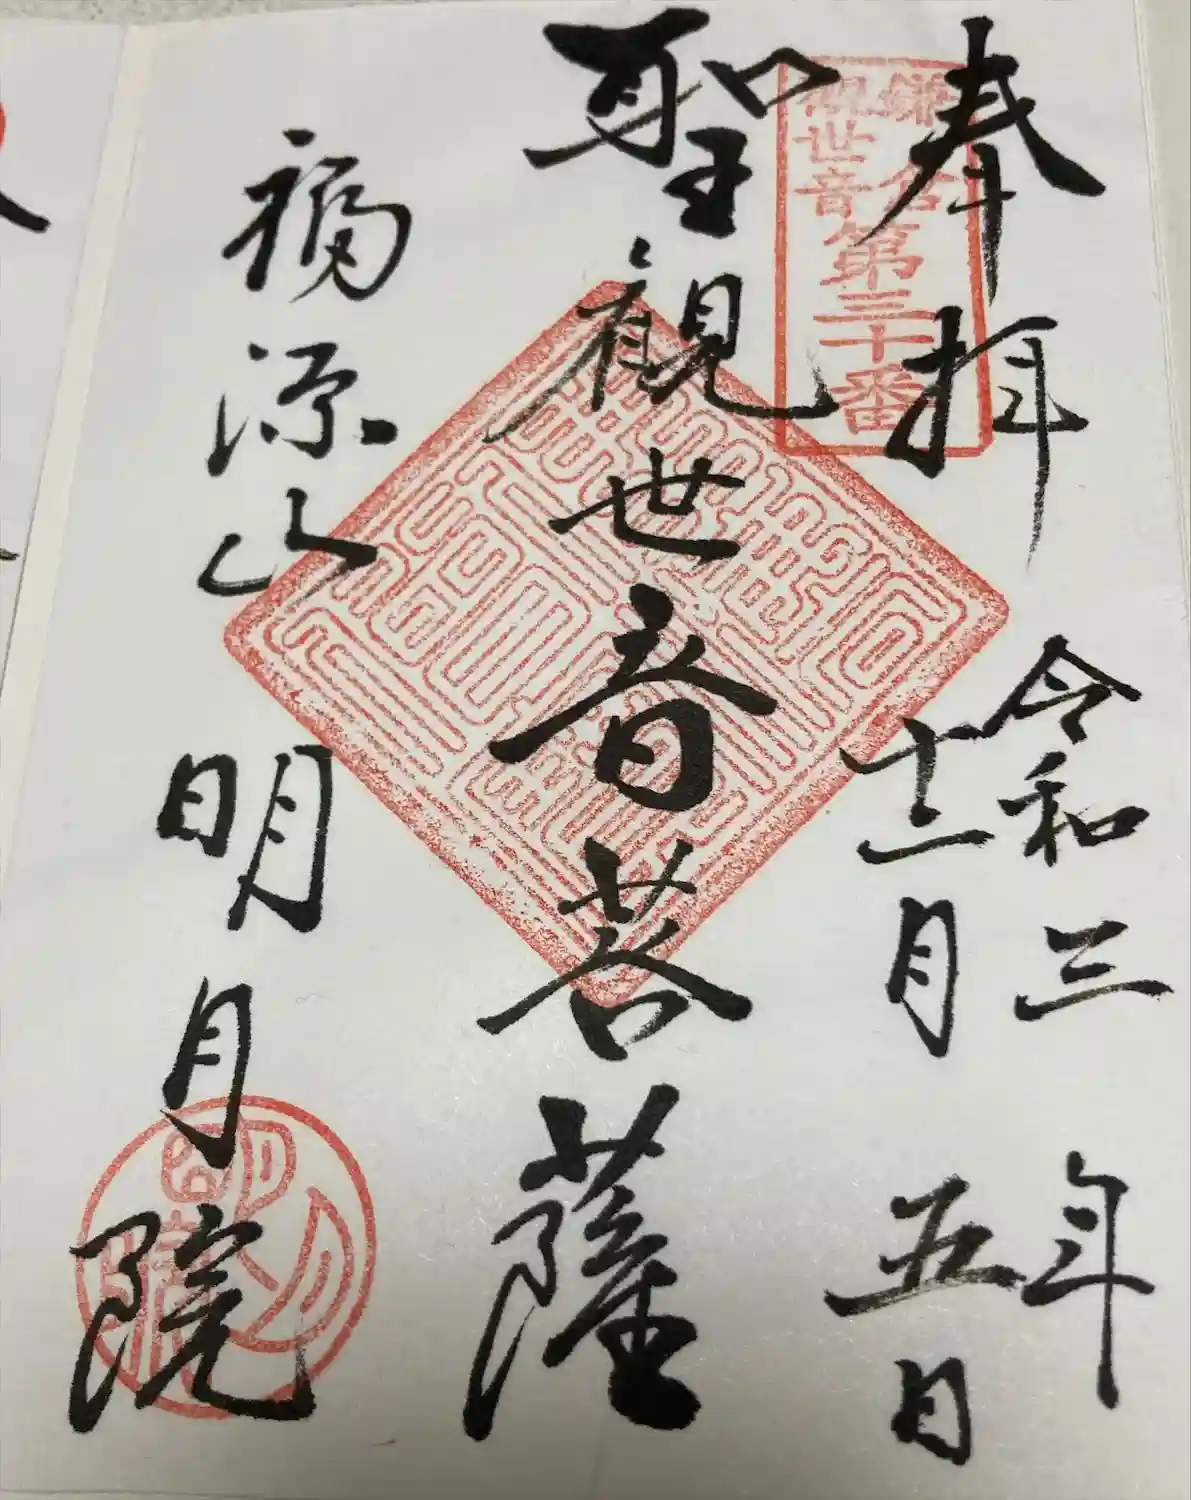 奉拝
令和三年
十二月五日
鎌倉
観世音
第三十番
聖観世音菩薩
福源山
明月院